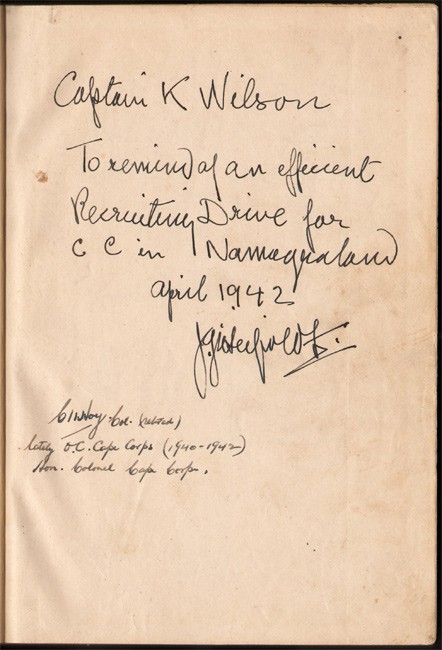 Captain K Wilson
To remind of an efficient
Recruiting Drive for
C C in Namaqualand
April 1942
Col. (retired)
lately O.C. Cape Corps (1940-1942)
Hon. Colonel Cape Corps.